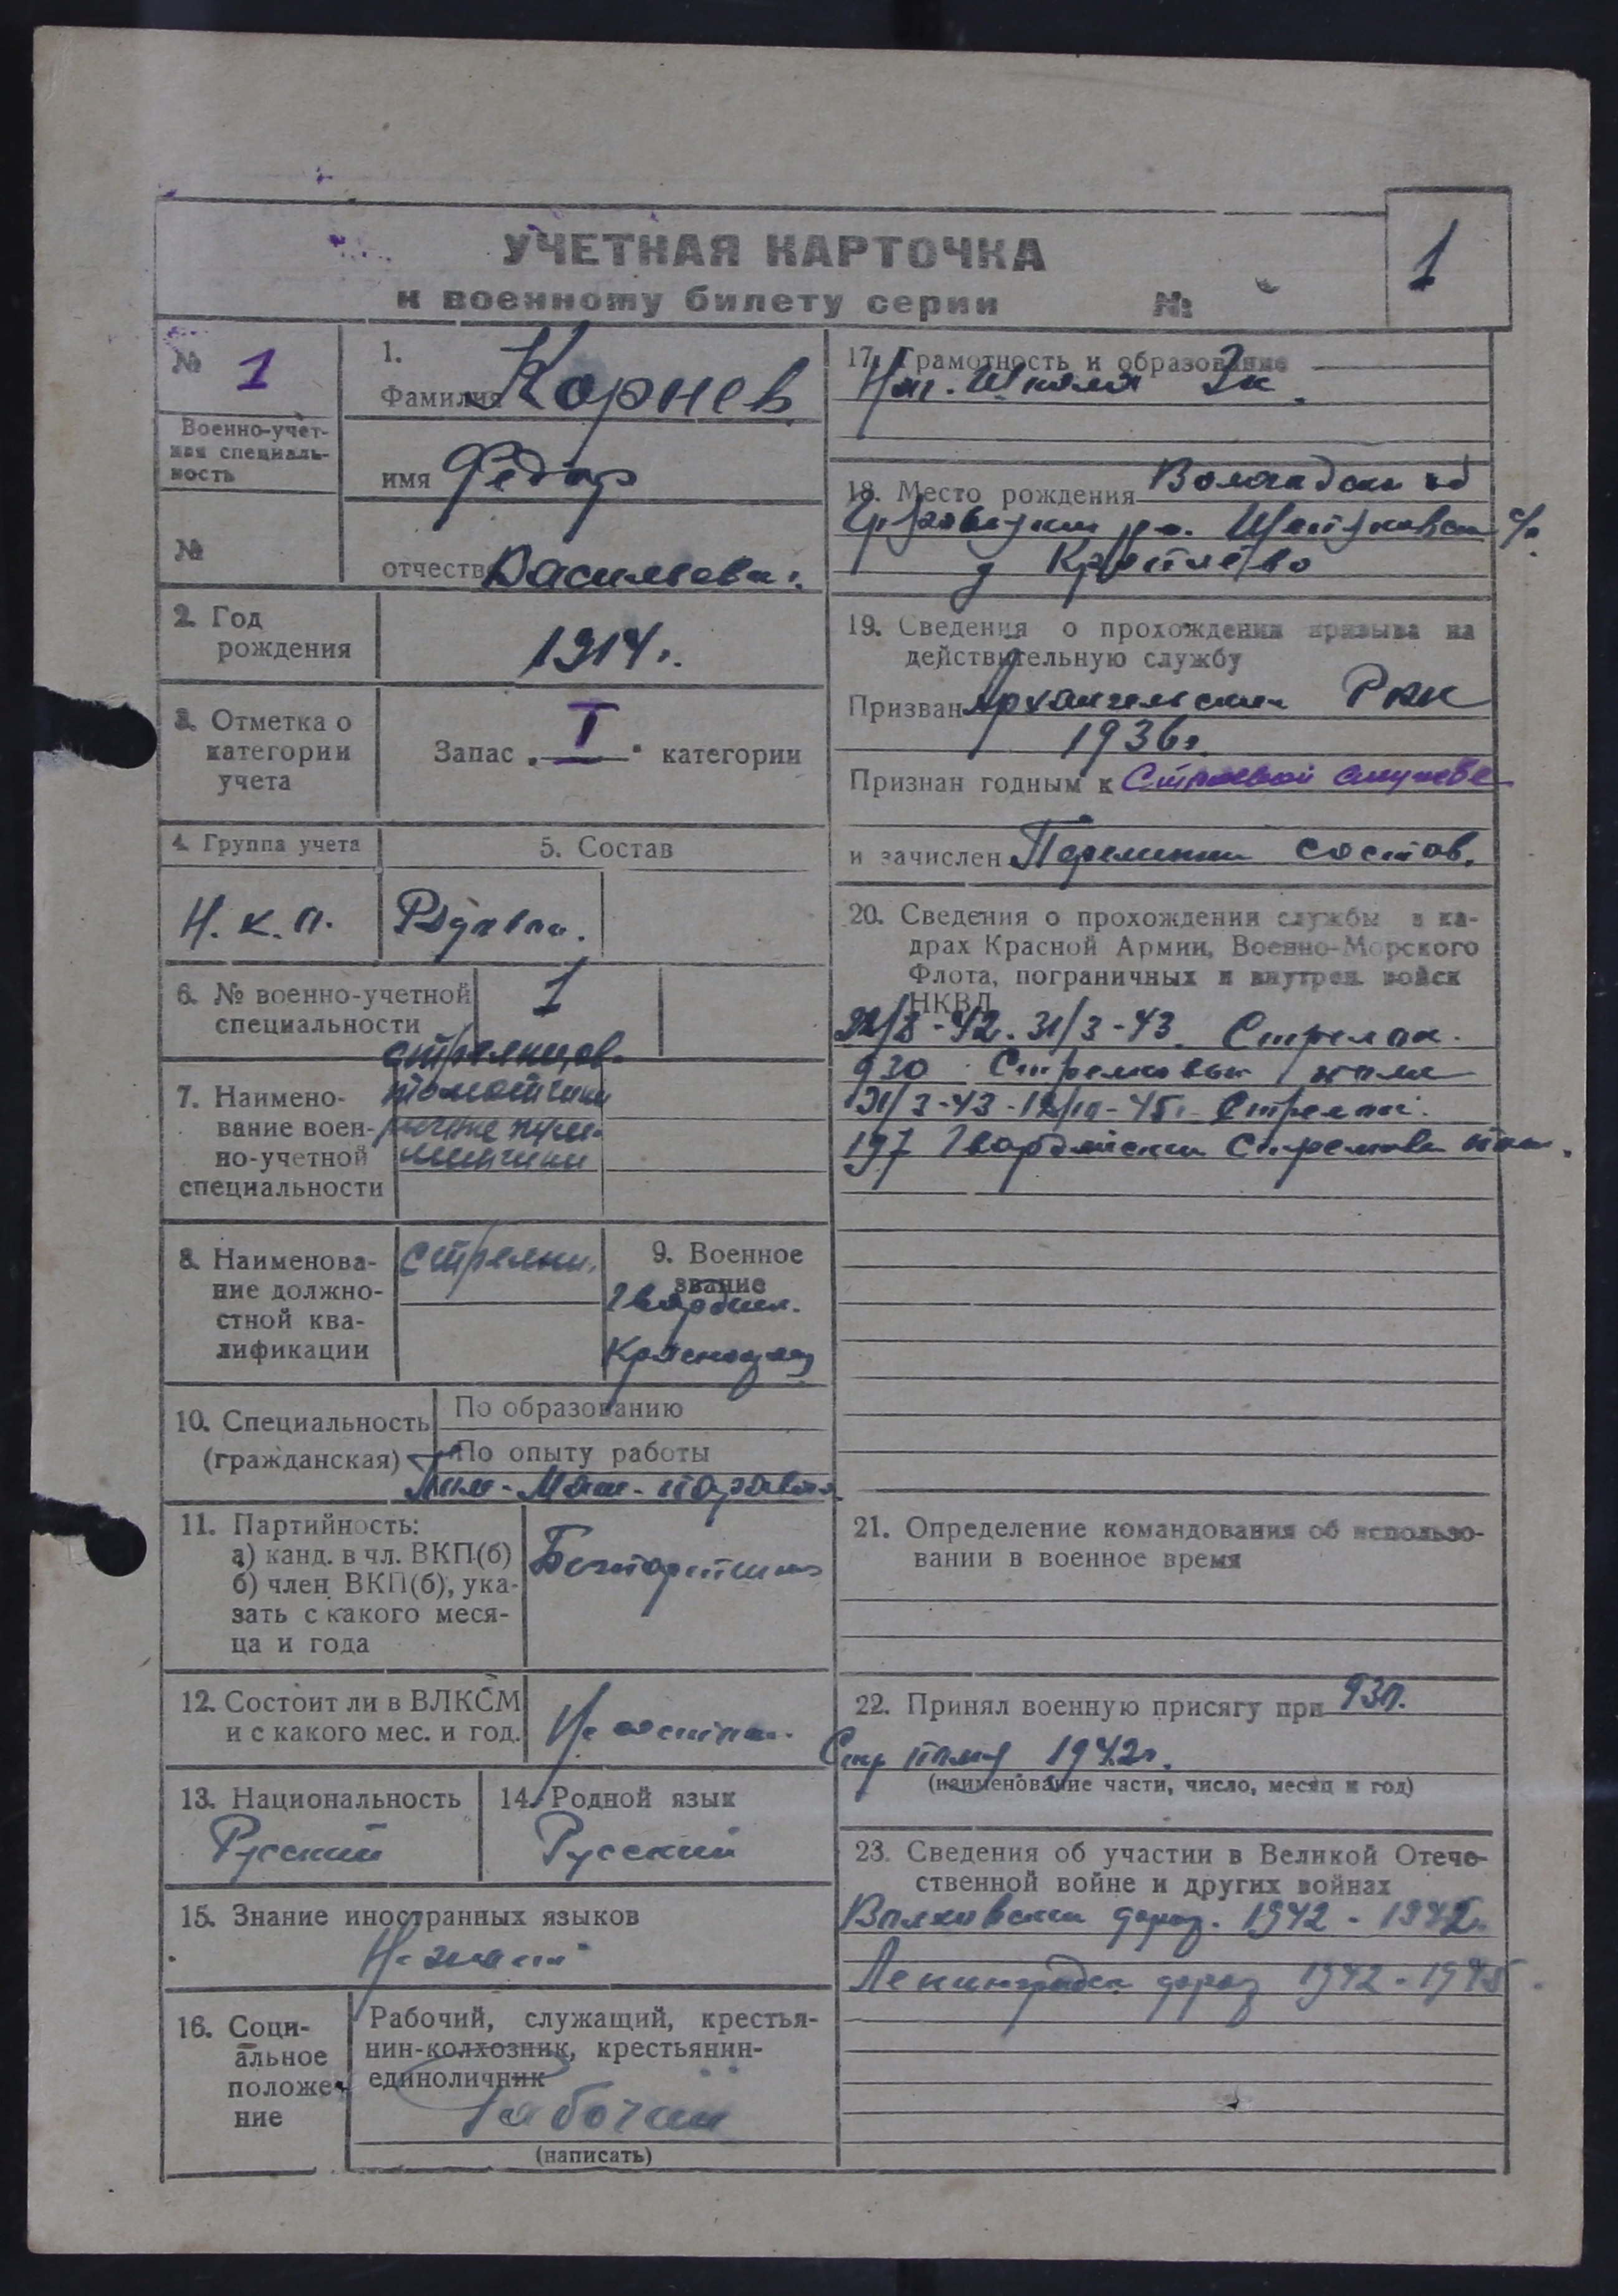 УЧЕТНАЯ КАРТОЧКА
к военному билету серии №
1
№ 1
Военно-учет-
ная специаль-
ность
№
1.
Фамилия Корнев
имя Федор
отчество Васильевич
2. Год
рождения
1914г.
3. Отметка о
категории
учета
Запас „I“ категории
4. Группа учета
Н.к.п.
5. Состав
Рядовой.
6. № военно-учетной
специальности
1
7. Наимено-
вание воен-
но-учетной
специальности
8. Наименова-
ние должно-
стной ква-
лификации
9. Военное
звание
Гвардии.
10. Специальность
(гражданская)
По образованию
По опыту работы
11. Партийность:
а) канд. в чл. ВКП(б)
б) член ВКП(б), ука-
зать с какого меся-
ца и года
12. Состоит ли в ВЛКСМ
и с какого мес. и год.
Не состоит.
13. Национальность
Русский
14. Родной язык
Русский
15. Знание иностранных языков
Не знает
16. Соци-
альное
положе-
ние
Рабочий, служащий, крестья-
нин-колхозник, крестьянин-
единоличник
Рабочий
(написать)
17. Грамотность и образование
Нач. школа 3к.
18. Место рождения
19. Сведения о прохождении призыва на
действительную службу
Призван Архангельским РВК
1936г.
Признан годным к Строевой службе
и зачислен
состав.
20. Сведения о прохождении службы в ка-
драх Красной Армии, Военно-Морского
Флота, пограничных и внутрен. войск
НКВД
31/3-43. Стрелок.
930 Стрелковый полк
31/3-43 Стрелок.
197 Гвардейский Стрелковый полк.
21. Определение командования об использо-
вании в военное время
22. Принял военную присягу при 930.
Стр полку 1942г.
(наименование части, число, месяц и год)
23. Сведения об участии в Великой Отече-
ственной войне и других войнах
Волховский фронт. 1942 - 1942
Ленинградск фронт 1942 - 1945